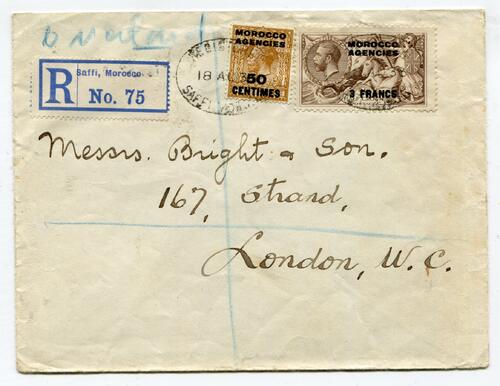 REGIS
18 AU
SAFFI
MOROCCO
AGENCIES
50
CENTIMES
MOROCCO
AGENCIES
3 FRANCS
R
Saffi, Morocco.
No. 75
Messrs. Bright & Son.
167, Strand,
London, W.C.